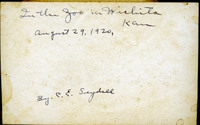 In the Zoo in Wichita
Kan
August 29, 1920,
By. C. E. Seydell